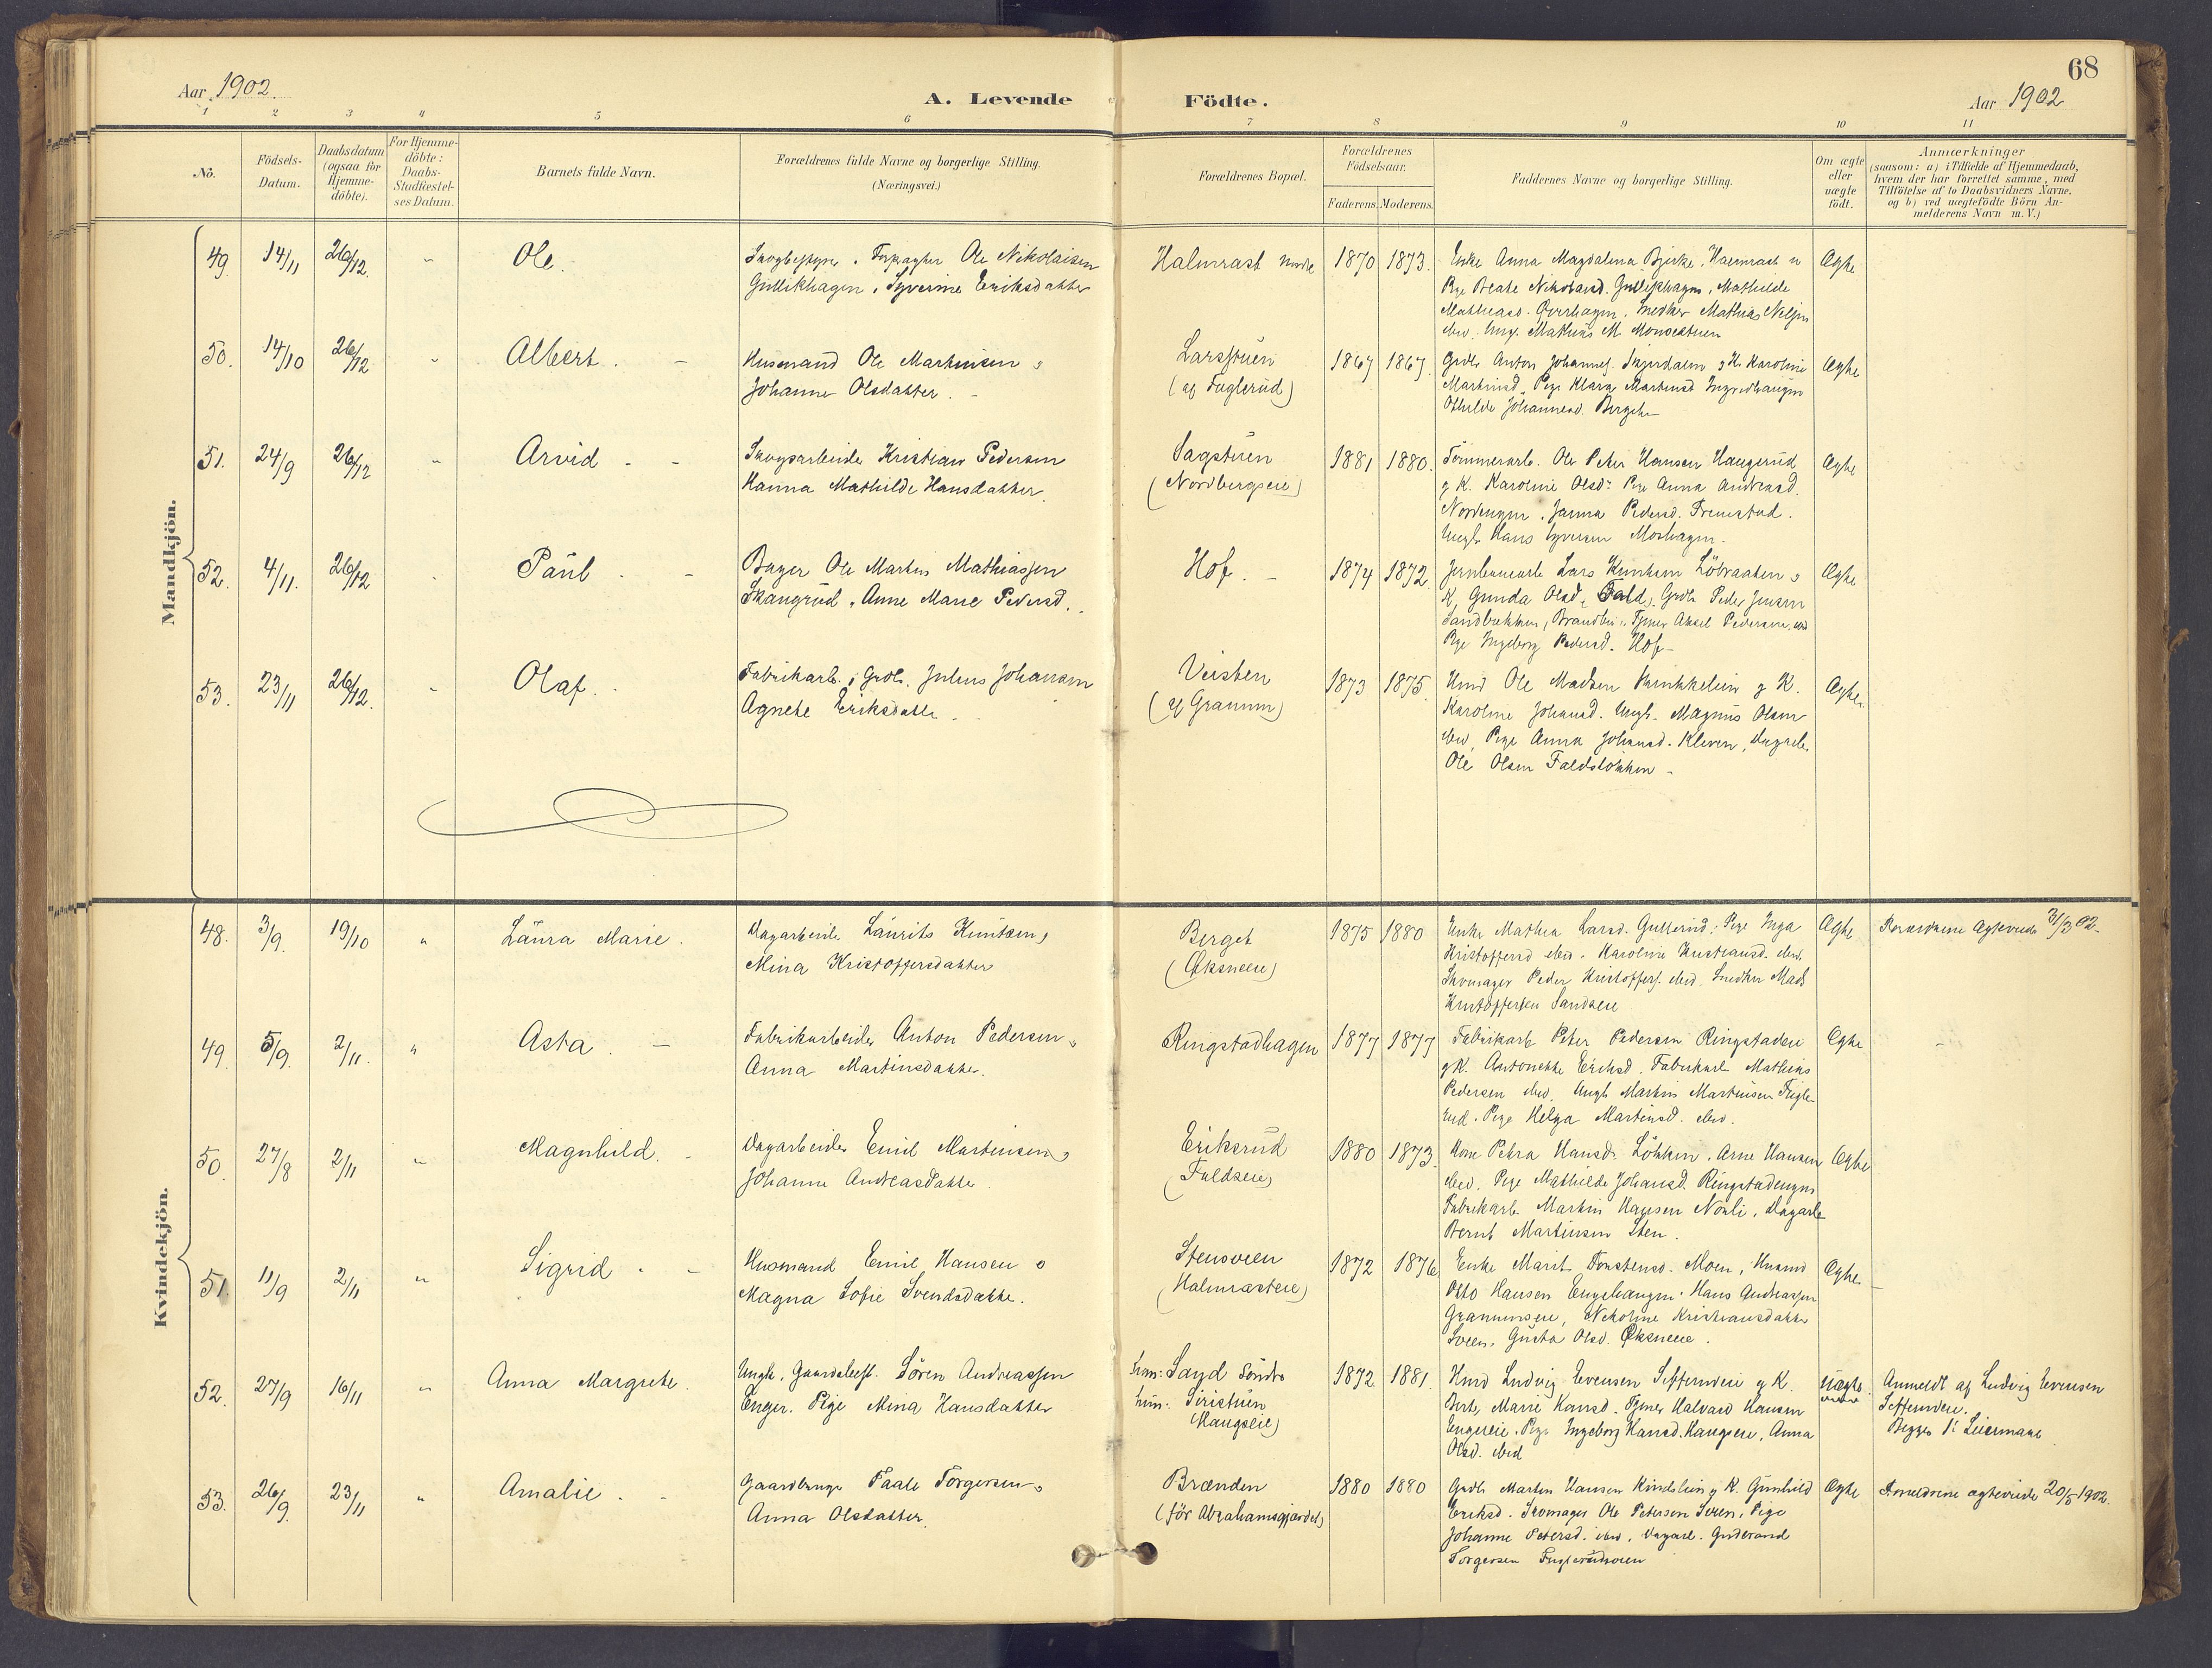 68
Aar 1902.
A. Levende Födte.
Aar 1902
1 2 3 4 5 6 7 8 9 10 11
No.
Födsels-Datum.
Daabsdatum (ogsaa for Hjemme-döbte).
For Hjemme-döbte: Daabs-Stadfæstel-ses Datum.
Barnets fulde Navn.
Forældrenes fulde Navne og borgerlige Stilling.
(Næringsvei.)
Forældrenes Bopæl.
Forældrenes Födselsaar.
Faderens. Moderens.
Faddernes Navne og borgerlige Stilling.
Om ægte eller uægte födt.
Anmærkninger
(saasom: a) i Tilfælde af Hjemmedaab,
hvem der har forrettet samme, med
Tilföielse af to Daabsvidners Navne.
og b) ved uægtefödte Börn An-
melderens Navn m.V.)
Mandkjön.
49. 14/11 26/12. " Ole. Ole Nikolaisen
Gullikhagen, Syverine Eriksdatter
Halmrast nordre 1870 1873.
Enke Anna Magdalena Bjerke, Halmrast n
Pige Beate Nikolaisd. Gullikhagen, Mathilde
Mathiasd. Mathias Nilsen
ebd. Ungk. Mathias M.
Ægte
50. 14/10 26/12 " Albert. - Husmand Ole Martinsen &
Johanne Olsdatter. -
Larsstuen
(af Fuglerud)
1867 1867.
Grdb. Anton Johannes. & K. Karoline
Martinsd. Pige Klara Martinsd
Othilde Johannesd.
Ægte
51. 24/9 26/12 " Arvid - - Skovarbeider Kristian Pedersen
Hanna Mathilde Hansdatter.
Sagstuen
(Nordbergseie)
1881 1880.
Tömmerarb. Ole Peter Hansen Haugerud
& K. Karoline Olsd. Pige Anna Andreasd.
Nordengen, Janna Pedersd. Fremstad.
Ungk. Hans Syversen Moshagen.
Ægte
52. 4/11. 26/12 " Paul - - Bager Ole Martin Mathiassen
Skaugrud, Anne Marie Pedersd.
Hof. - 1874 1872.
Jernbanearb. Lars Knutsen Löbraaten &
K. Gunda Olsd. Fald, Grdb. Peder Jensen
Sandbækken, Brandbu, Tjener Aksel Pedersen, ebd
Pige Ingeborg Pedersd. Hof -
Ægte
53. 23/11 26/12. " Olaf. - Fabrikarb. & Grdb. Julius Johansen
Agnete Eriksdatter.
Veisten
(af Granum)
1873 1875
Hmd Ole Madsen & K.
Karoline Johansd. Ungk. Magnus Olsen
ebd, Pige Anna Johansd. Kleven, Dagarb.
Ole Olsen Faldslökken -
Ægte
Kvindekjön.
48. 3/9. 19/10 " Laura Marie. Dagarbeider Laurits Knutsen,
Mina Kristoffersdatter
Berget
(Øksneeie)
1875 1880
Enke Mathea Larsd. Gullerud, Pige Inga
Kristoffersd ebd. Karoline Kristiansd. ebd,
Skomager Peder Kristoffers. ebd. Snedker Mads
Kristoffersen Sandseie
Ægte Forældrene Ægteviede 31/3 02.
49. 5/9. 2/11. " Asta. - Fabrikarbeider Anton Pedersen &
Anna Martinsdatter.
Ringstadhagen 1877 1877
Fabrikarb Peter Pedersen Ringstadeie
& K. Antonette Eriksd. Fabrikarb Mathias
Pedersen ebd. Ungk Martin Martinsen Fugle-
rud. Pige Helga Martinsd. ebd.
Ægte -
50. 27/8 2/11 " Magnhild. - Dagarbeider Emil Martinsen &
Johanne Andreasdatter.
Eriksrud
(Faldseie)
1880 1873.
Kone Petra Hansd. Lökken, Arne Hansen
ebd. Pige Mathilde Johansd. Ringstadengen
Fabrikarb. Martin Hansen Nordli, Dagarb
Bernt Martinsen Sten.
Ægte
51. 11/9 2/11 " Sigrid - - Husmand Emil Hansen &
Magna Sofie Svendsdatter.
Stensveen
(Halmrasteie)
1872 1876
Enke Marit Torstensd. Moen, Husmd
Otto Hansen Engehaugen, Hans Andreassen
Granumseie, Nikoline Kristiansdatter
Sveen, Gusta Olsd. Øksneeie.
Ægte -
52. 27/9 16/11 " Anna Margrete. Ungk., Gaardsbest. Sören Andreassen
Enger. Pige Mina Hansdatter
ham: Sayd Söndre
hun: Siristuen
(Haugseie)
1872. 1881.
Hmd Ludvig Evensen Sefferudeie & K.
Berte Marie Hansd. Tjener Halvard Hansen
Engereie, Pige Ingeborg Hansd. Haugseie, Anna
Olsd. ebd
Uægte. Anmeldt af Ludvig Evensen
Sefferudeie.
Begges 1ste Leiermaal
53. 26/9. 23/11 " Amalie. - - Gaardbruger Paale Torgersen &
Anna Olsdatter.
Brænden
(för Abrahamsgjærdet)
1880 1880
Grdb Martin Hansen Kindslien & K. Gunhild
Eriksd. Skomager Ole Petersen Sveen, Pige
Johanne Petersd. ebd, Dagarb. Gudbrand
Torgersen Fuglerudsveen
Ægte Forældrene ægteviede 20/5 1902.